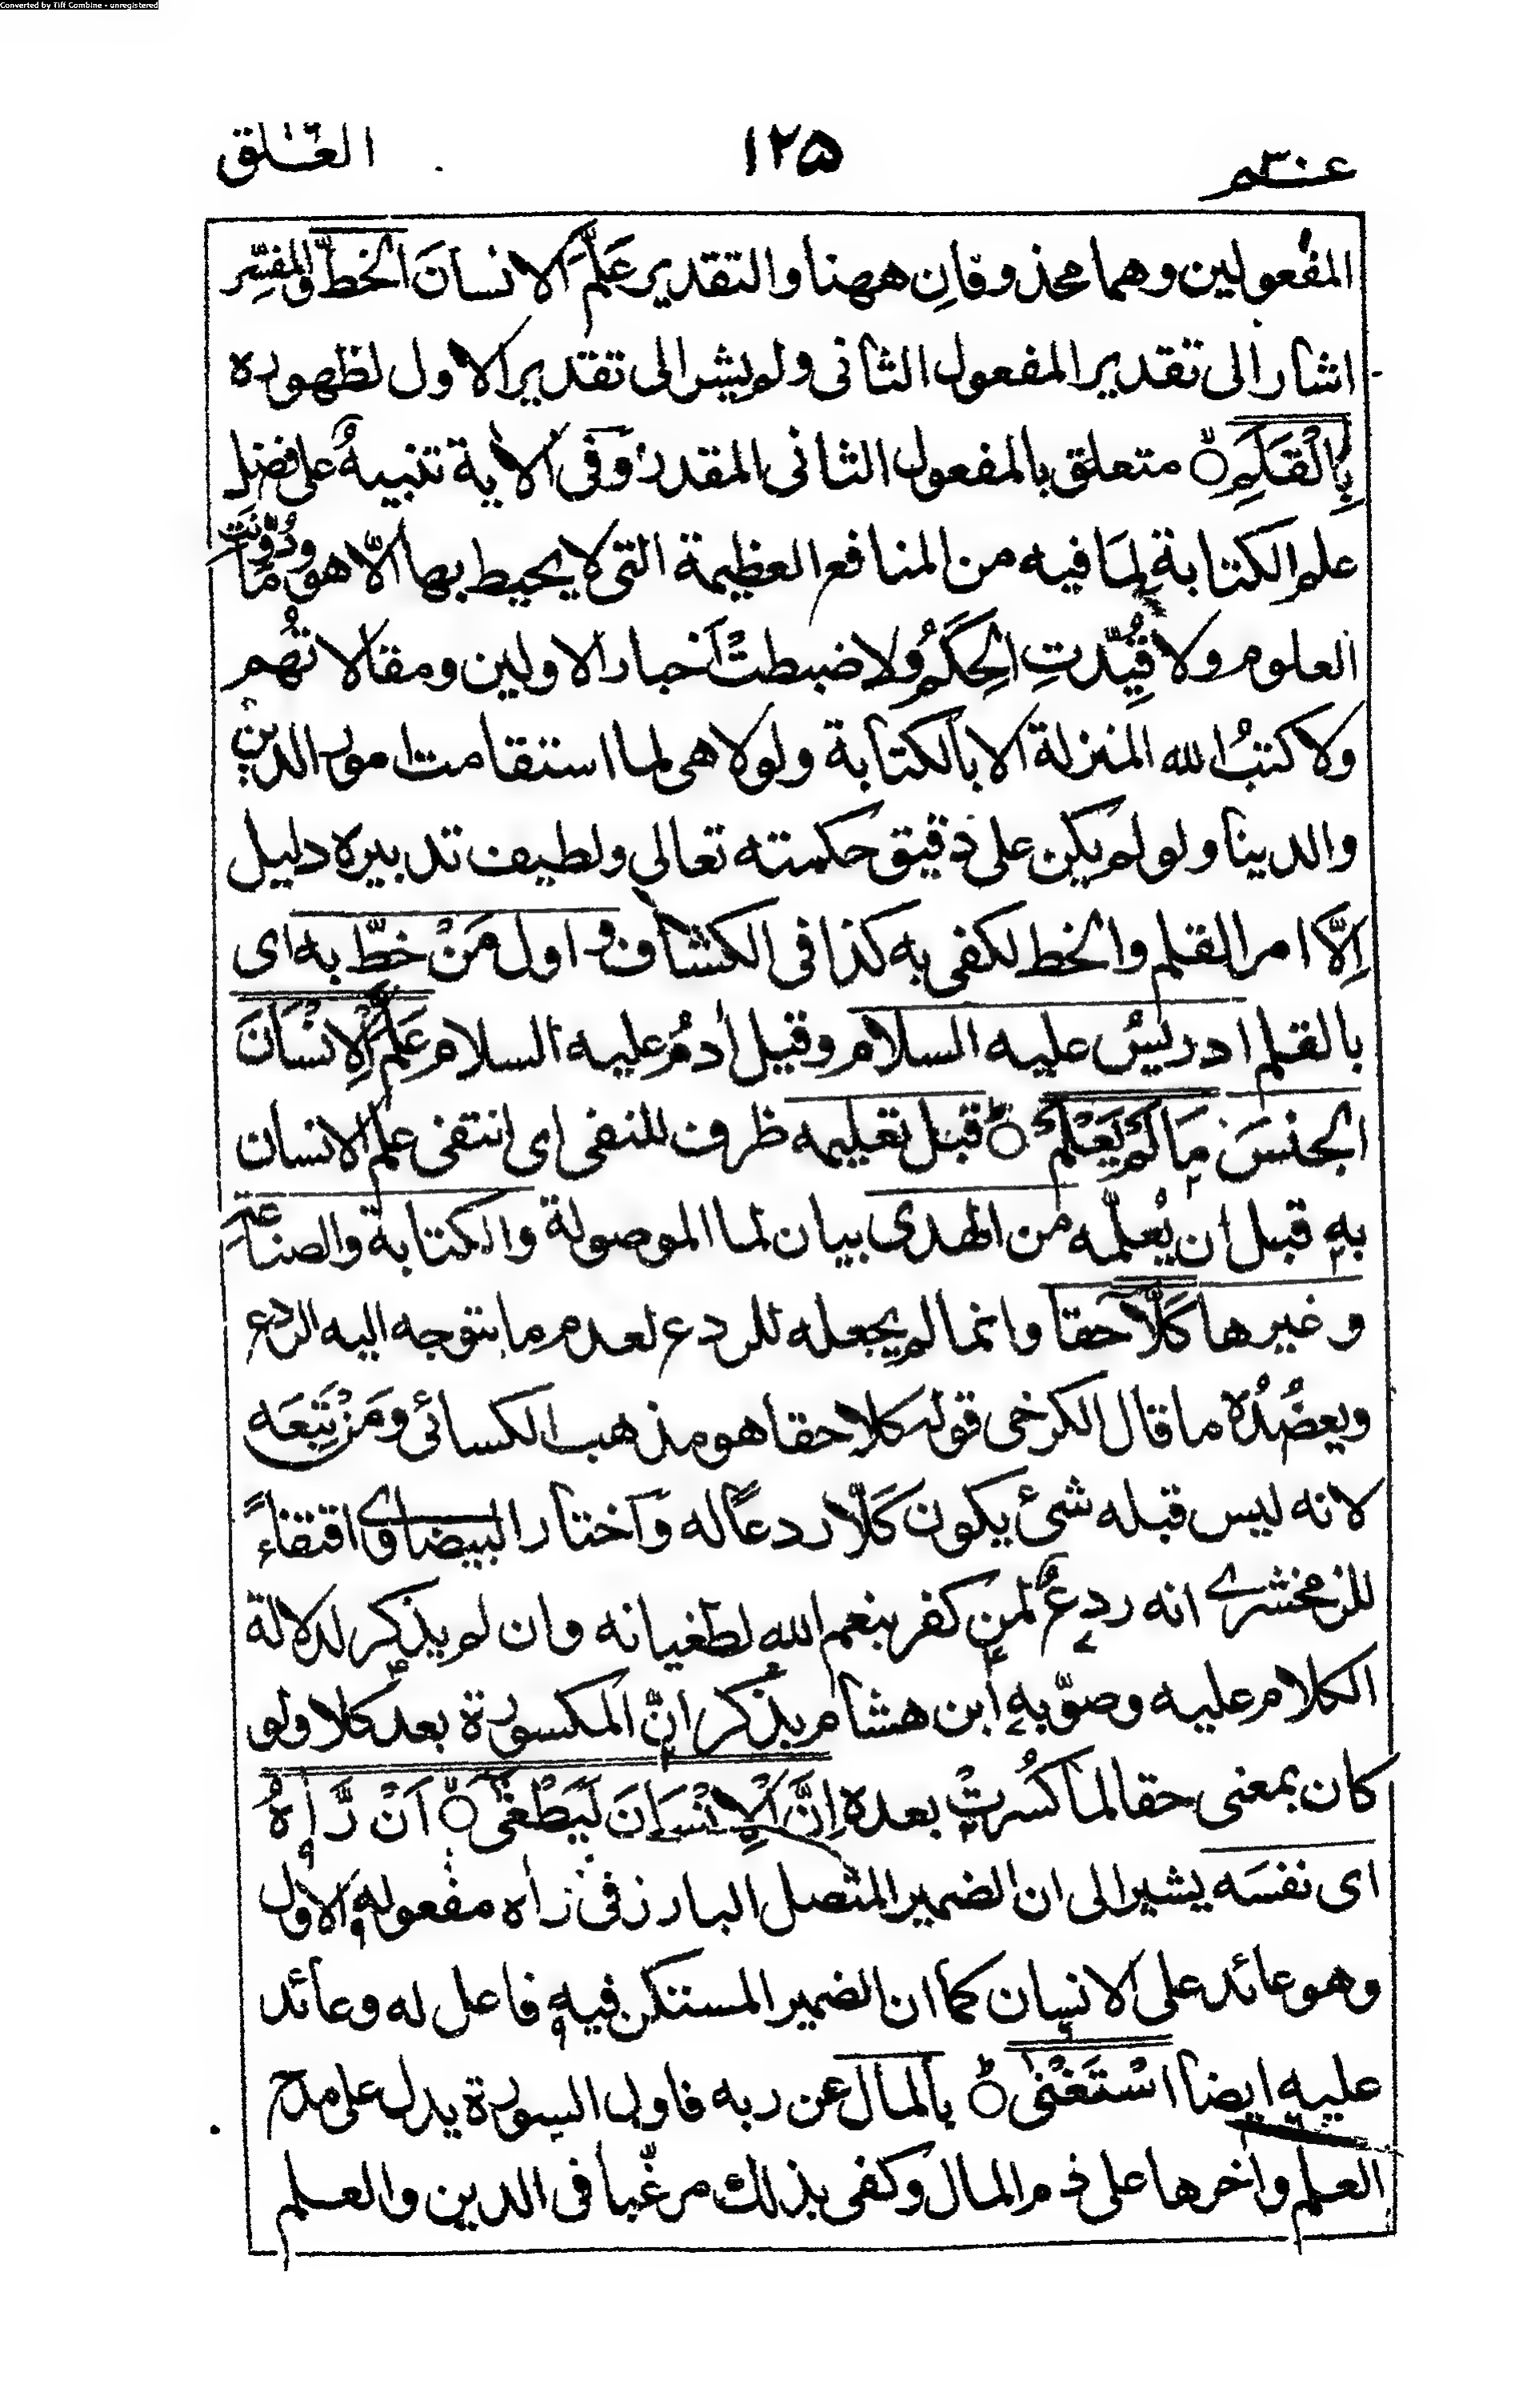 Converted by Tiff Combine - unregistered
عم ٣٠ ١٢٥ العلق
المفعولين وهما محذوفانِ ههنا والتقدير عَلَّمَ الانسانَ الخطَّ والمفسِّر
اشار الى تقدير المفعول الثانى ولم يشر الى تقدير الاول لظهوره
بِالْقَلَمِ ۙ متعلق بالمفعول الثانى المقدر وفى الاية تنبيهٌ على فضل
علم الكتابة لِمَا فيه من المنافع العظيمة التى لا يحيط بها الّا هو وما دُوِّنَت
العلوم ولا قُيِّدتِ الحِكَمُ ولا ضبطتْ اَخبار الاولين ومقالاتهُم
ولا كتبُ الله المنزلة الا بالكتابة ولولا هى لما استقامت امور الدين
والدينا ولو لم يكن على دقيق حكمته تعالى ولطيف تدبيره دليل
اِلَّا امر القلم والخط لكفى به كذا فى الكشاف و اول مَنْ خطّ به اى
بالقلم ادريسُ عليه السلام وقيل اٰدمُ عليه السلام عَلَّمَ الْاِنْسَانَ
الجنسَ مَا لَمْ يَعْلَمْ ؕ قبل تعليمه ظرف للنفى اى انتفى علم الانسان
به قبل ان يُعلّمه من الهدى بيان لما الموصولة والكتابة والصناعة
وغيرها كَلَّآ حقا وانما لم يجعله للردع لعدم ما يتوجه اليه الردع
ويعضُدُه ما قال الكرخى قوله كلا حقا هو مذهب الكسائى ومَنْ تَبِعَه
لانه ليس قبله شئ يكون كَلّا ردعًا له وَاختار البيضاوى اقتفاءً
للزمخشرے انه ردعٌ لمن كفر بنعم الله لطغيانه وان لم يذكر لدلالة
الكلام عليه وصوّبه ابن هشام بذكر انّ المكسورة بعد كلا ولو
كان بمعنى حقا لما كُسرتْ بعده اِنَّ الْاِنْسَانَ لَيَطْغٰٓى ۙ اَنْ رَّاٰهُ
اى نفسَه يشير الى ان الضمير المتصل البارز فى رأه مفعوله الاول
وهو عائد على الانسان كما ان الضمير المستكن فيه فاعل له وعائد
عليه ايضا اسْتَغْنٰى ؕ بالمال عن ربه فاول السورة يدل على مدح
العلم واٰخرها على ذم المال وكفى بذلك مرغّبا فى الدين والعلم